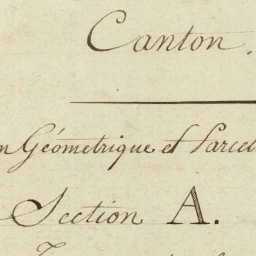 Canton.
n Géometrique et Parcel
Section A.